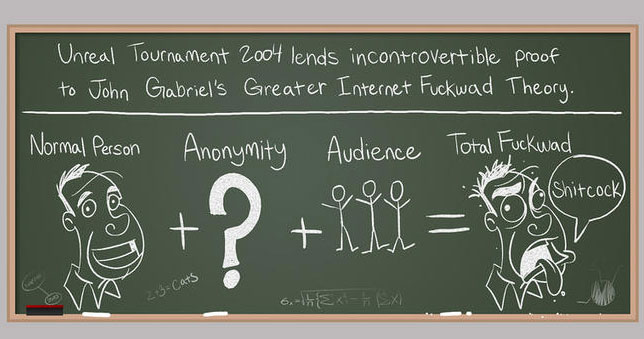 Unreal Tournament 2004 lends incontrovertible proof
to John Gabriel's Greater Internet Fuckwad Theory.
Normal Person
Anonymity
Audience
Total Fuckwad
+ ? + =
Shitcock
2+3=Cats